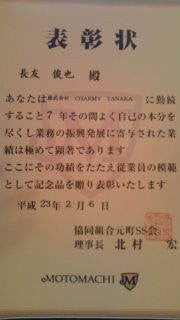 表彰状
長友 俊也 殿
あなたは 株式会社 CHARMY TANAKA に勤続
すること 7 年その間よく自己の本分を
尽くし業務の振興発展に寄与された業
績は極めて顕著であります
ここにその功績をたたえ従業員の模範
として記念品を贈り表彰いたします
平成 23年 2月 6日
協同組合元町SS会
理事長 北村 宏
MOTOMACHI M